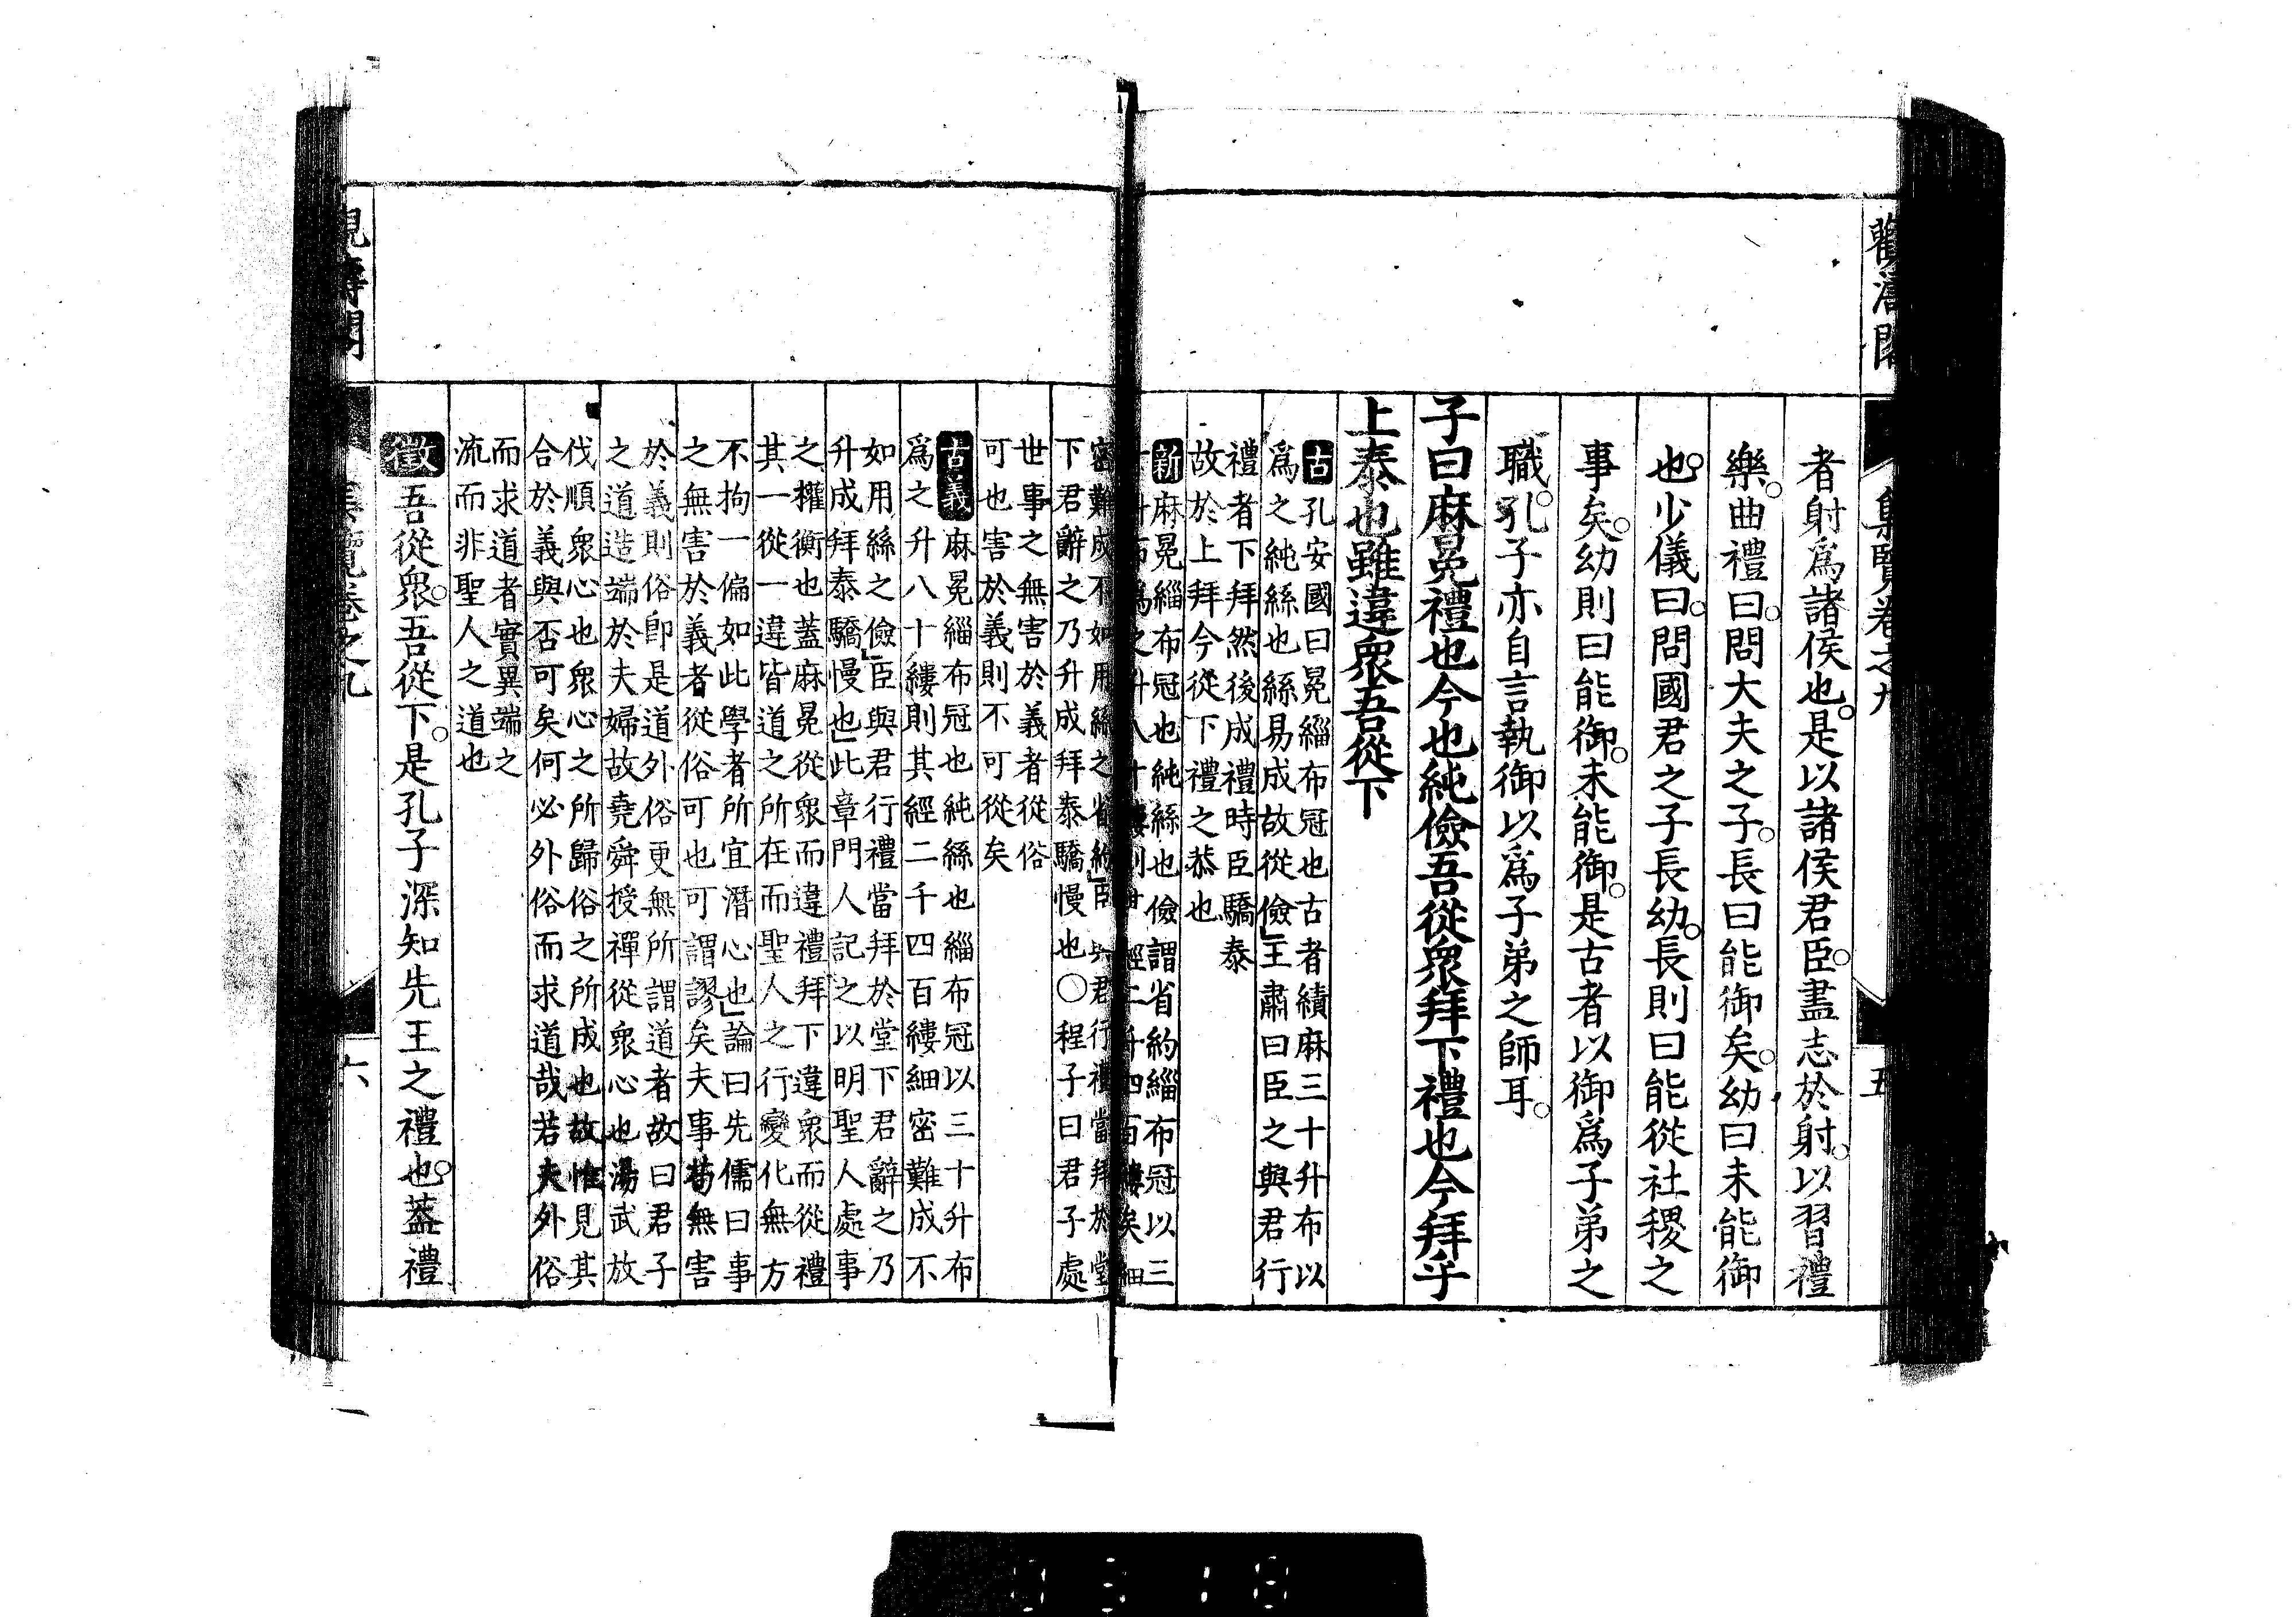 觀濤閣
集覽卷之九
五
者射爲諸侯也。是以諸侯君臣。盡志於射。以習禮
樂。曲禮曰。問大夫之子。長曰能御矣。幼曰未能御
也。少儀曰。問國君之子長幼。長則曰能從社稷之
事矣。幼則曰能御。未能御。是古者以御爲子弟之
職。孔子亦自言執御以爲子弟之師耳。
子曰麻冕禮也今也純儉吾從衆拜下禮也今拜乎
上泰也雖違衆吾從下
古孔安國曰冕緇布冠也古者績麻三十升布以
爲之純絲也絲易成故從儉」王肅曰臣之與君行
禮者下拜然後成禮時臣驕泰
故於上拜今從下禮之恭也
新麻冕緇布冠也純絲也儉謂省約緇布冠以三
十升布爲之升八十縷則其經二千四百縷矣細
密難成不如用絲之省約」臣與君行禮當拜於堂
下君辭之乃升成拜泰驕慢也○程子曰君子處
世事之無害於義者從俗
可也害於義則不可從矣
古義麻冕緇布冠也純絲也緇布冠以三十升布
爲之升八十縷則其經二千四百縷細密難成不
如用絲之儉」臣與君行禮當拜於堂下君辭之乃
升成拜泰驕慢也」此章門人記之以明聖人處事
之權衡也蓋麻冕從衆而違禮拜下違衆而從禮
其一從一違皆道之所在而聖人之行變化無方
不拘一偏如此學者所宜潛心也」論曰先儒曰事
之無害於義者從俗可也可謂謬矣夫事苟無害
於義則俗卽是道外俗更無所謂道者故曰君子
之道造端於夫婦故堯舜授禪從衆心也湯武放
伐順衆心也衆心之所歸俗之所成也故惟見其
合於義與否可矣何必外俗而求道哉若夫外俗
而求道者實異端之
流而非聖人之道也
徵吾從衆。吾從下。是孔子深知先王之禮也。蓋禮
觀濤閣
集覽卷之九
六